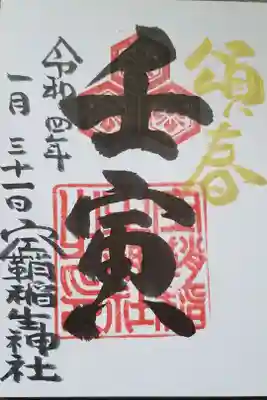 頌春
壬寅
令和四年
一月三十一日 空鞘稲生神社